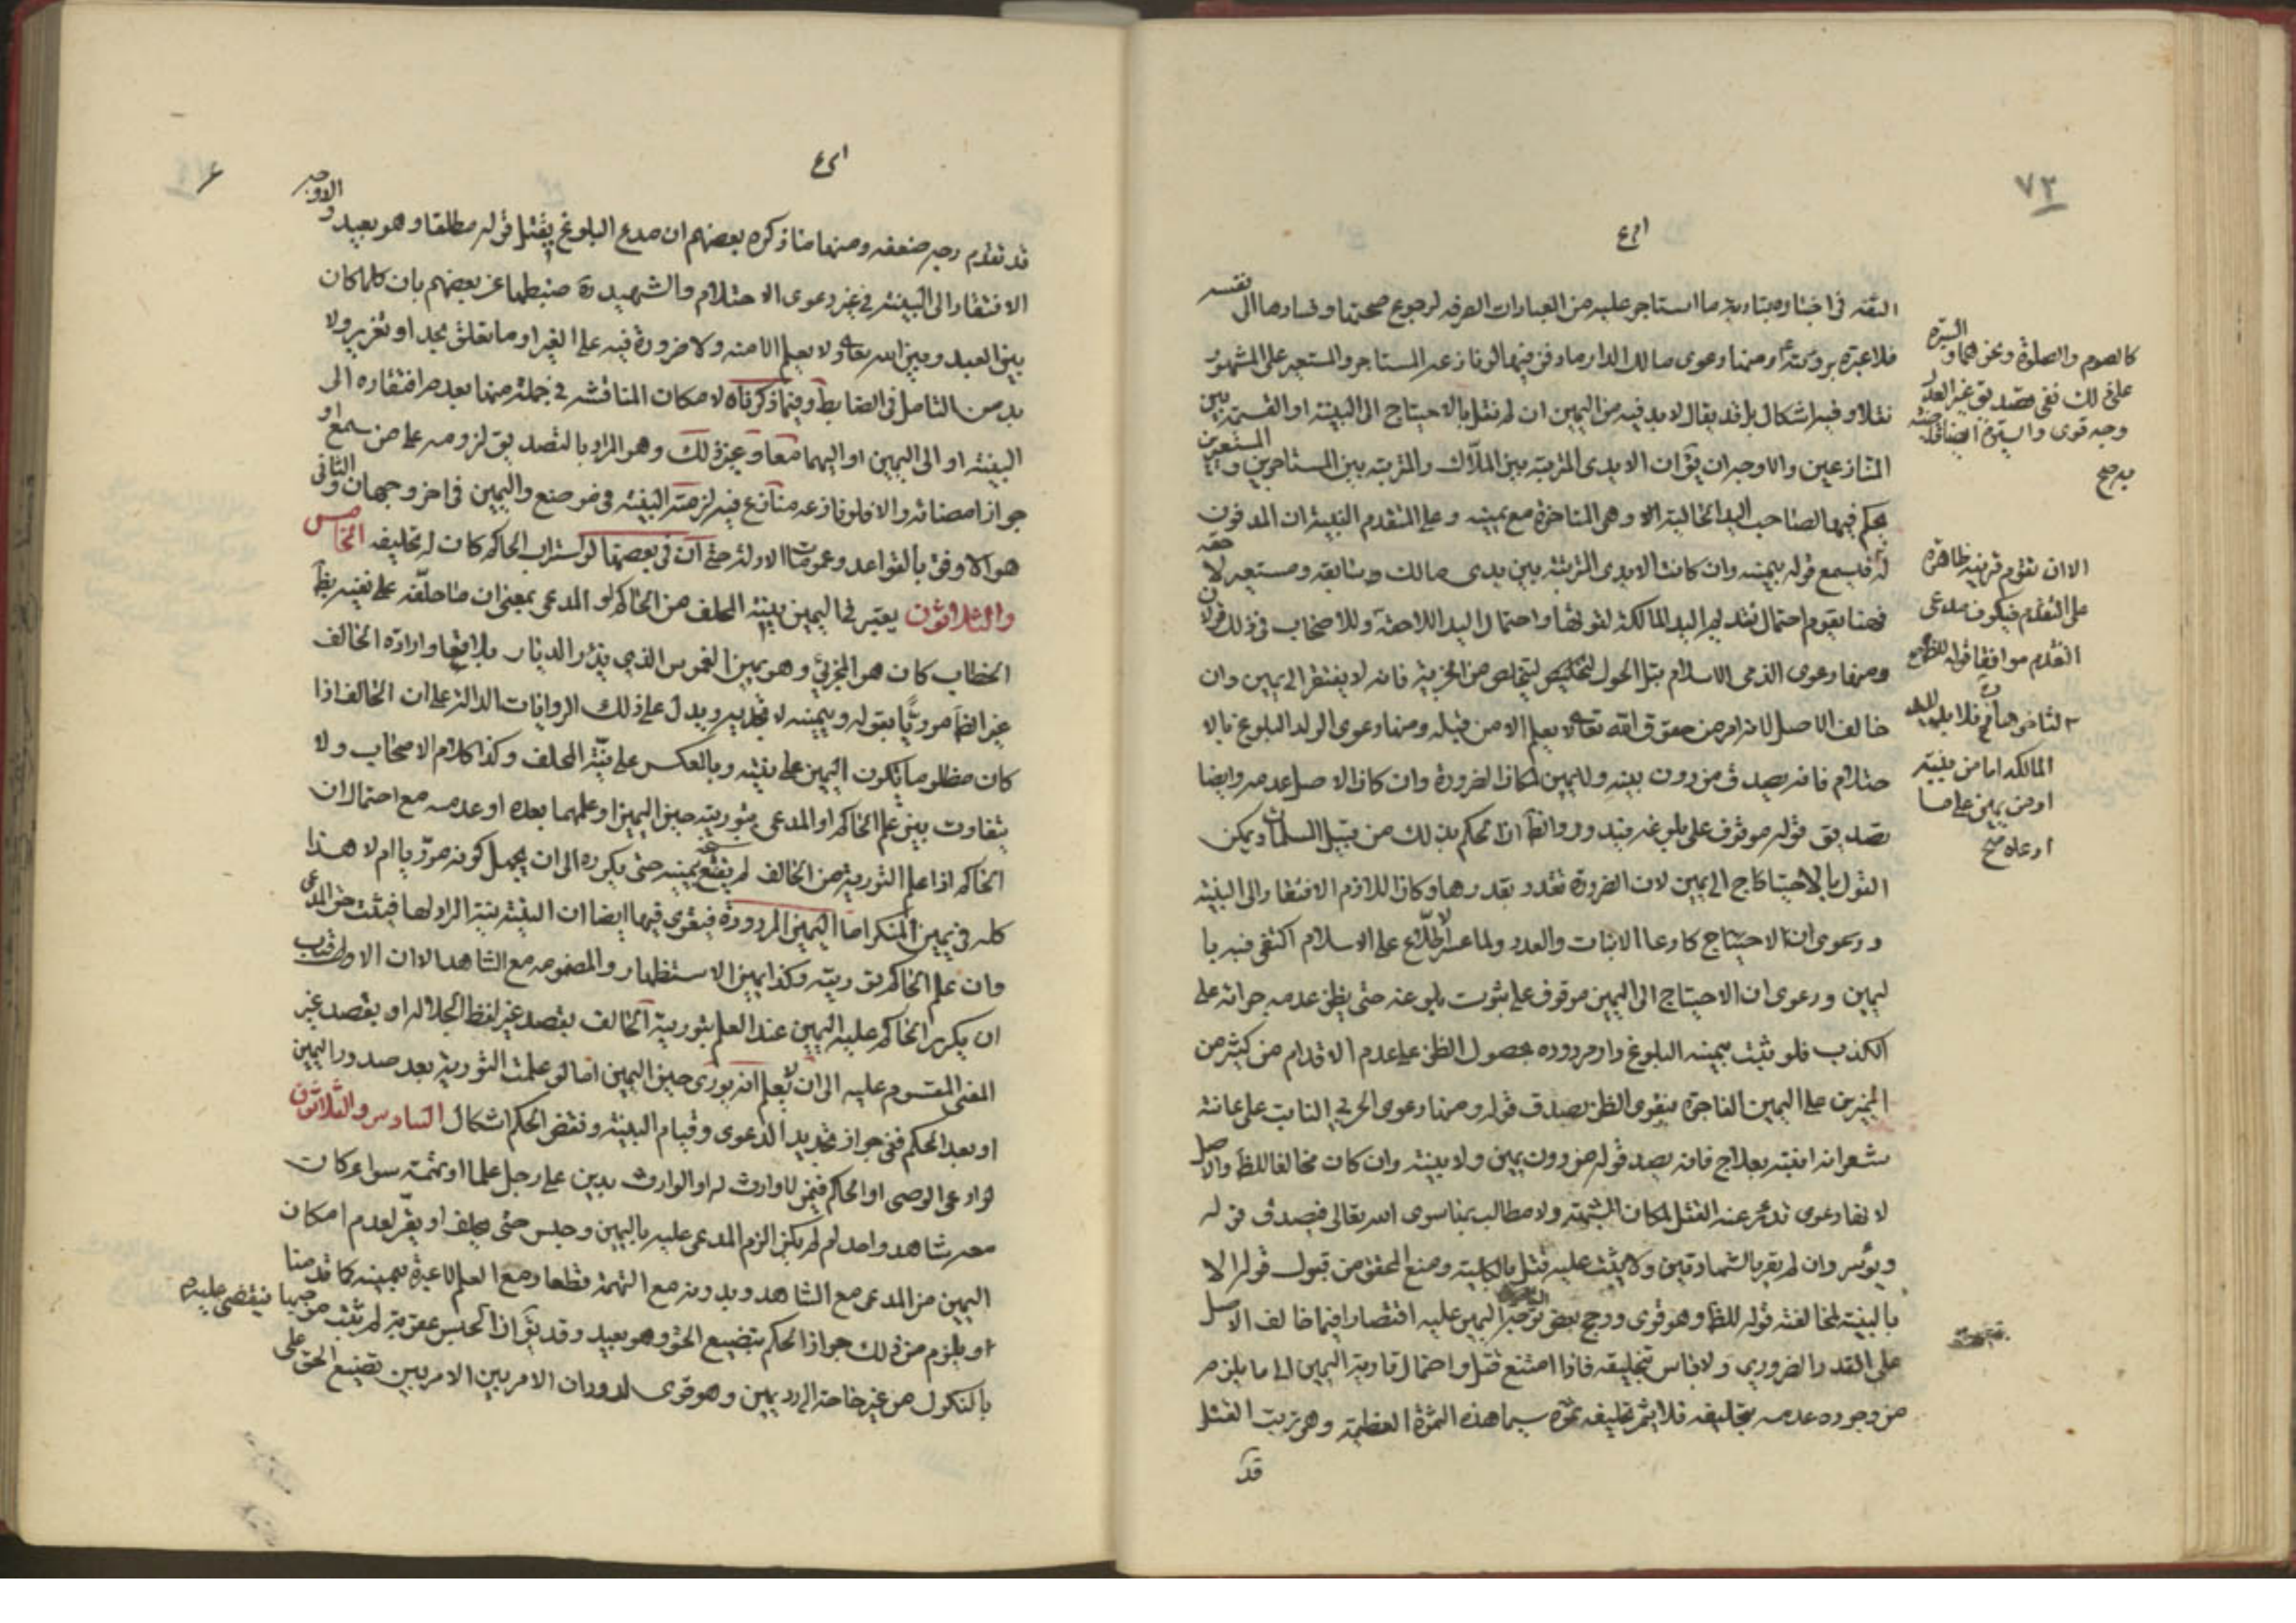 ٧٢
الثقة في اخباره بتادية ما استاجر عليه من العبادات الصرفه لرجوع صحتها وفسادها الى نفسه
فلا عبرة ومنها دعوى مالك الدار مادفن فيها لو نازعه المستاجر والمستعير على المشهور
نقلا وفيه اشكال بل قد يقال لا بد فيه من اليمين ان لم نقل بالاحتياج الى البينة او القسمة بين
المتنازعين والاوجه ان يق ان الايدى المترتبه بين الملّاك والمترتبه بين المستاجرين والمستعيرين
يحكم فيها لصاحب اليد الحاليه وهى المتاخرة مع يمينه وعلى المتقدم البينة ان المدفون
له فيسمع قوله بيمينه وان كانت الايدى المترتبه بين يدى مالك سابقه ومستعير لاحقه
فهنا يقوم احتمال تقديم اليد المالكه لقوتها واحتمال اليد اللاحقه وللاصحاب في ذلك قولان
ومنها دعوى الذمى الاسلام قبل الحول ليتخلص من الجزية فانه لا يفتقر الى يمين وان
خالف الاصل لانه امر من حقوق الله تعالى لا يعلم الا من قبله ومنها دعوى الولد البلوغ بالا
حتلام فانه يصدق من دون بينه ولا يمين لمكان الضرورة وان كان الاصل عدمه وايضا
تصديق قوله موقوف على بلوغه فيدور والظ ان الحكم بذلك من قبيل المسلمات ويمكن
القول بالاحتياج الى يمين لان الضرورة تقدر بقدرها وكان اللازم الافتقار الى البينه
ودعوى ان الاحتياج كادعاء الانبات والعدد ولما عسر الاطلاع على الاسلام اكتفى فيه با
ليمين ودعوى ان الاحتياج الى اليمين موقوف على ثبوت بلوغه حتى يظن عدمه جراته على
الكذب فلو ثبت بيمينه البلوغ دار مردوده بحصول الظن على عدم الاقدام من كثير من
المميزين على اليمين الفاجرة فيقوى الظن بصدق قوله ومنها دعوى الحربي النابت على عانته
شعر انه انبته بعلاج فانه يصدق قوله من دون يمين ولا بينه وان كان مخالفا للظ والاصل
لانها دعوى تدرء عنه القتل لمكان الشبهة ولا مطالب بها سوى الله تعالى فيصدق قوله
ويؤسر وان لم يقر بالشهادتين ولا يثبت عليه قتل بالكلية ومنع المحقق من قبول قوله الا
بالبينة لمخالفته قوله للظ وهو قوى ورجح بعض توجه اليمين عليه اقتصارا فيما خالف الاصل
على القدر الضروري ولا باس بتحليفه فاذا امتنع قتل واحتمال تاديه اليمين الى ما يلزم
من وجوده عدمه بتحليفه فلا يثمر تحليفه ثمرة سيما هذه الثمرة العظيمة وهى ترتب القتل
قد
كالصوم والصلوة ونحوهما والسيرة
على ذلك ففى تصديق غير العدل
وجه قوى والسيرة ايضا
الا ان تقوم قرينه ظاهرة
على التقدم فيكون مدعى
التقدم موافقا قوله
المالكه اما من بينة
او من يمين على ما
ادعاه صح
قد تقدم وجه ضعفه ومنها ما ذكره بعضهم ان مدع البلوغ يقبل قوله مطلقا وهو بعيد والاوجه
الافتقار الى البينه في غير دعوى الاحتلام والشهيد ره ضبطها عن بعضهم بان كلما كان
بين العبد وبين الله تعالى ولا يعلم الا منه ولا ضرورة فيه على الغير او ما تعلق بحد او تعزير ولا
بد من التامل في الضابط وفيما ذكرناه لامكان المناقشه في جملة منها بعدم افتقاره الى
البينه او الى اليمين او اليهما معا وغير ذلك وهو المراد بالتصديق لزومه على من سمع او
جواز امضائه والا فلو نازعه منازع فيه لزمته البينه في موضع واليمين في اخر وجهان والثاني
هو الاوفق بالقواعد وعمومات الادلة حتى ان في بعضها لو استراب الحاكم كان له تحليفه الخامس
والثلاثون يعتبر في اليمين نية المحلف من الحاكم او المدعى بمعنى ان ما حلّفه على نفيه بظ
الخطاب كان هو المجزئ وهو يمين الغموس الذي يذر الديار بلاقع وارادة الحالف
غير الظ مورّيا بقوله وبيمينه لا تجديه ويدل على ذلك الروايات الدالة على ان الحالف اذا
كان مظلوما تكون اليمين على نيته وبالعكس على نيّة المحلف وكذا كلام الاصحاب ولا
يتفاوت بين علم الحاكم او المدعى بتوريته حين اليمين او علمهما بعده او عدمه مع احتمال ان
الحاكم اذا علم التورية من الحالف لم يقنع بيمينه حتى يكرره الى ان يجهل كونه مورّيا ام لا هذا
كله في يمين المنكر اما اليمين المردودة فيقوى فيها ايضا ان النية نية الراد لها فيثبت حق المدعى
وان علم الحاكم توريته وكذا يمين الاستظهار والمضمومه مع الشاهد الا ان الاولى
ان يكرر الحاكم عليه اليمين عند العلم بتورية الحالف بقصد غير لفظ الجلاله او بقصد غير
المعنى المقسوم عليه الى ان لا يعلم انه يورى حين اليمين اما لو علمت التورية بعد صدور اليمين
او بعد الحكم ففي جواز تجديد الدعوى وقيام البينة ونقض الحكم اشكال السادس والثلاثون
لو ادعى الوصى او الحاكم فيمن لا وارث له او الوارث بدين على رجل علما او بتهمته سواء كان
معه شاهد واحد ام لم يكن الزم المدعى عليه باليمين وحبس حتى يحلف او يقر لعدم امكان
اليمين من المدعى مع الشاهد وبدونه مع التهمة قطعا ومع العلم لا عبرة بيمينه كما قدمنا
او يلزم من ذلك جواز الحكم بتضييع الحق وهو بعيد وقد يق ان الحبس عقوبة لم يثبت موجبها فيقضى عليه
بالنكول من غير حاجة الى رد يمين وهو قوى لدوران الامر بين الامرين تضييع الحق على